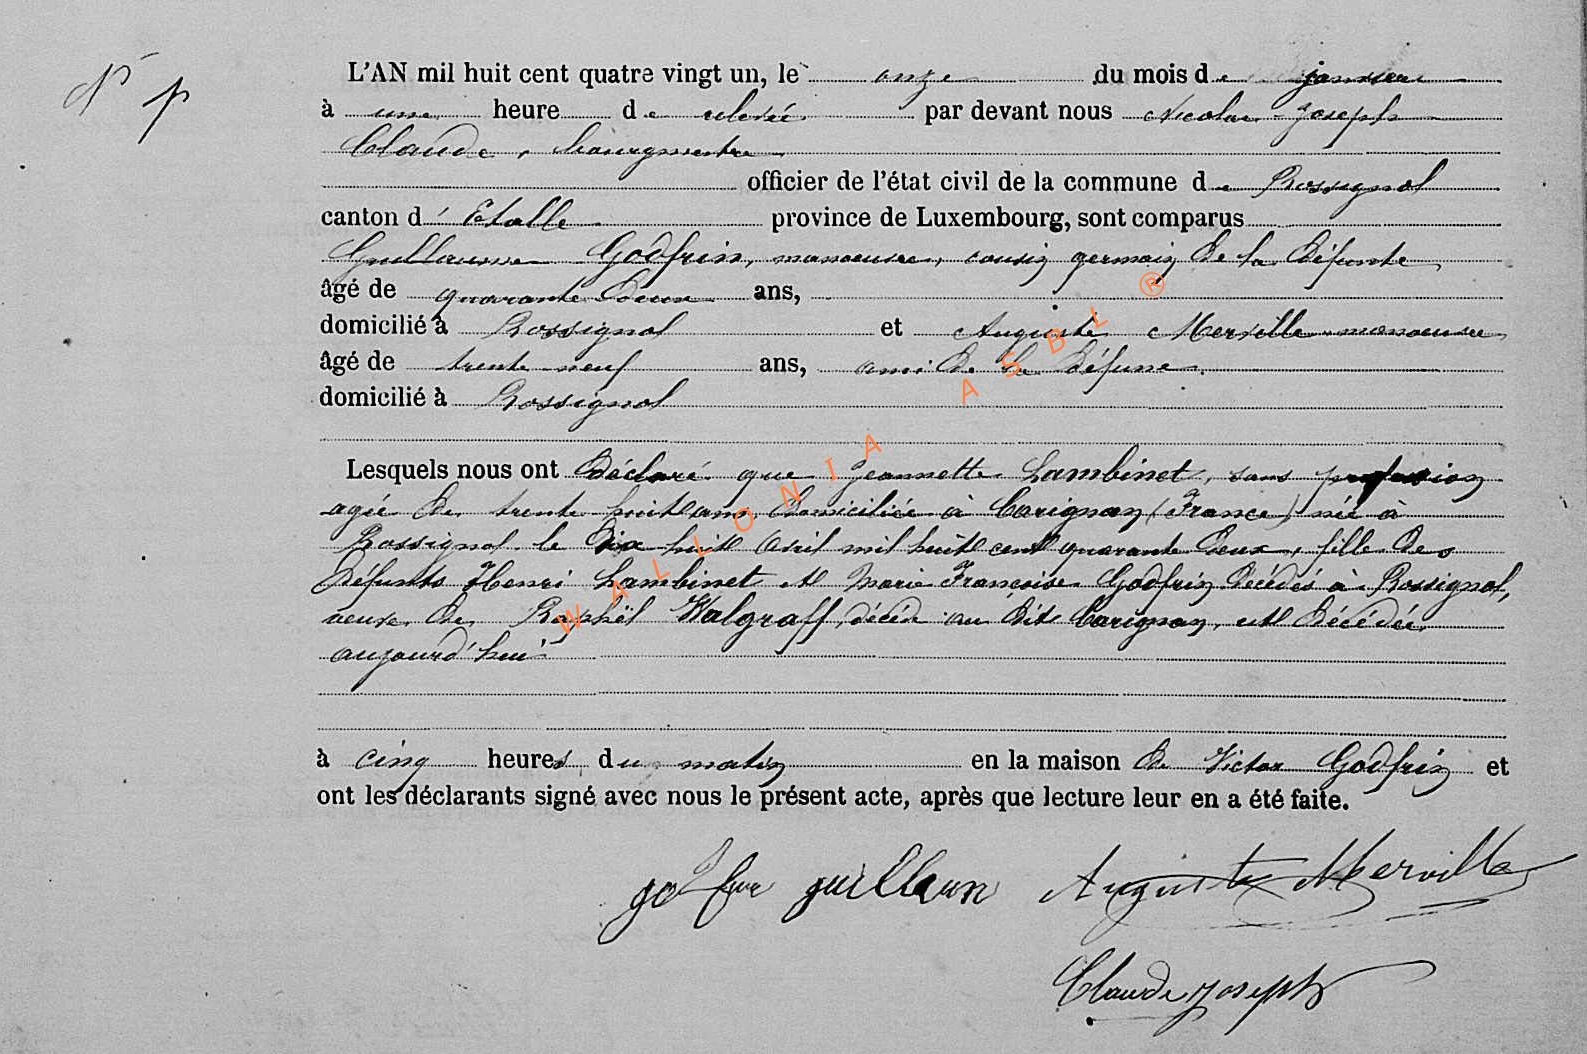 N° 1
L'AN mil huit cent quatre vingt un, le onze du mois de janvier
à une heure de relevée par devant nous Nicolas Joseph
Claude, bourgmestre
officier de l'état civil de la commune de Rossignol
canton d'Etalle province de Luxembourg, sont comparus
Guillaume Godfrin, manoeuvre, cousin germain de la défunte
âgé de quarante deux ans,
domicilié à Rossignol et Auguste Merville manoeuvre
âgé de trente neuf ans, ami de la défunte.
domicilié à Rossignol
Lesquels nous ont déclaré que Jeannette Lambinet, sans profession
agée de trente huit ans, domiciliée à Carignan (France) née à
Rossignol le dix huit avril mil huit cent quarante deux, fille des
défunts Henri Lambinet et Marie Françoise Godfrin décédés à Rossignol,
veuve de Raphël Walgraff, décédé au dit Carignan, est décédée
aujourd'hui
à cinq heures du matin en la maison de Victor Godfrin et
ont les déclarants signé avec nous le présent acte, après que lecture leur en a été faite.
guillaum Auguste Merville
Claude Joseph
WALLONIA ASBL ®